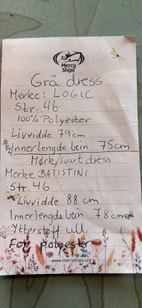 Mercy
Ships
Grå dress
Merke: LOGIC
Str. 46
100% Polyester
Livvidde 79cm
Innerlengde bein 75cm
Mørk/svart dress
Merke BATISTINI
Str 46
Livvidde 88 cm
Innerlengde bein 78cm
Ytterstoff ull
For polyester
www.mercyships.org